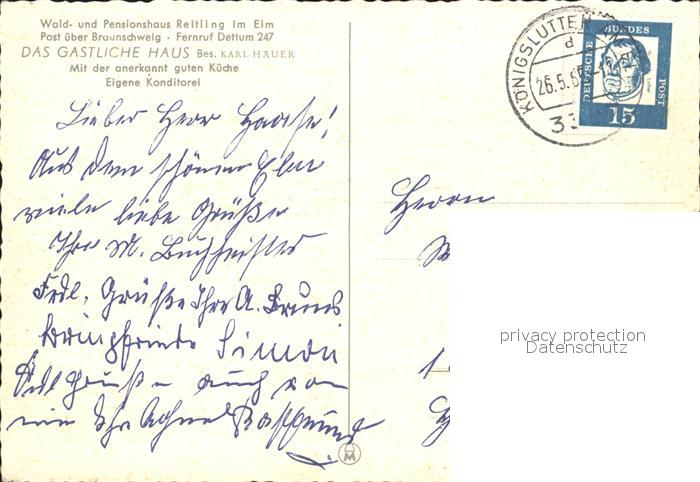 Wald- und Pensionshaus Reitling im Elm
Post über Braunschweig · Fernruf Dettum 247
DAS GASTLICHE HAUS Bes. KARL HÄUER
Mit der anerkannt guten Küche
Eigene Konditorei
Lieber Herr Haase!
Aus dem schönen Elm
viele liebe Grüße
Ihr M. Buchheister
Frdl. Grüße Ihre A. Bruns
Simon
auch von
Ihr
Herrn
KÖNIGSLUTTER
d
26.5.
33
DEUTSCHE
BUNDES
POST
15
privacy protection
Datenschutz